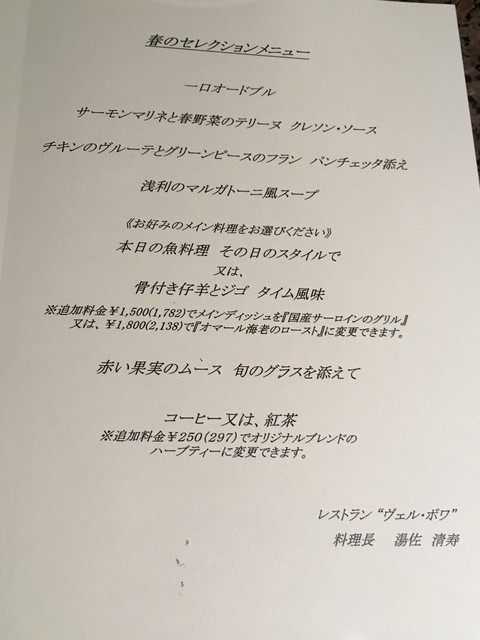 春のセレクションメニュー
一口オードブル
サーモンマリネと春野菜のテリーヌ クレソン・ソース
チキンのヴルーテとグリーンピースのフラン パンチェッタ添え
浅利のマルガトーニ風スープ
《お好みのメイン料理をお選びください》
本日の魚料理 その日のスタイルで
又は、
骨付き仔羊とジゴ タイム風味
※追加料金￥1,500(1,782)でメインディッシュを『国産サーロインのグリル』
又は、￥1,800(2,138)で『オマール海老のロースト』に変更できます。
赤い果実のムース 旬のグラスを添えて
コーヒー又は、紅茶
※追加料金￥250(297)でオリジナルブレンドの
ハーブティーに変更できます。
レストラン “ヴェル・ボワ”
料理長 湯佐 清寿